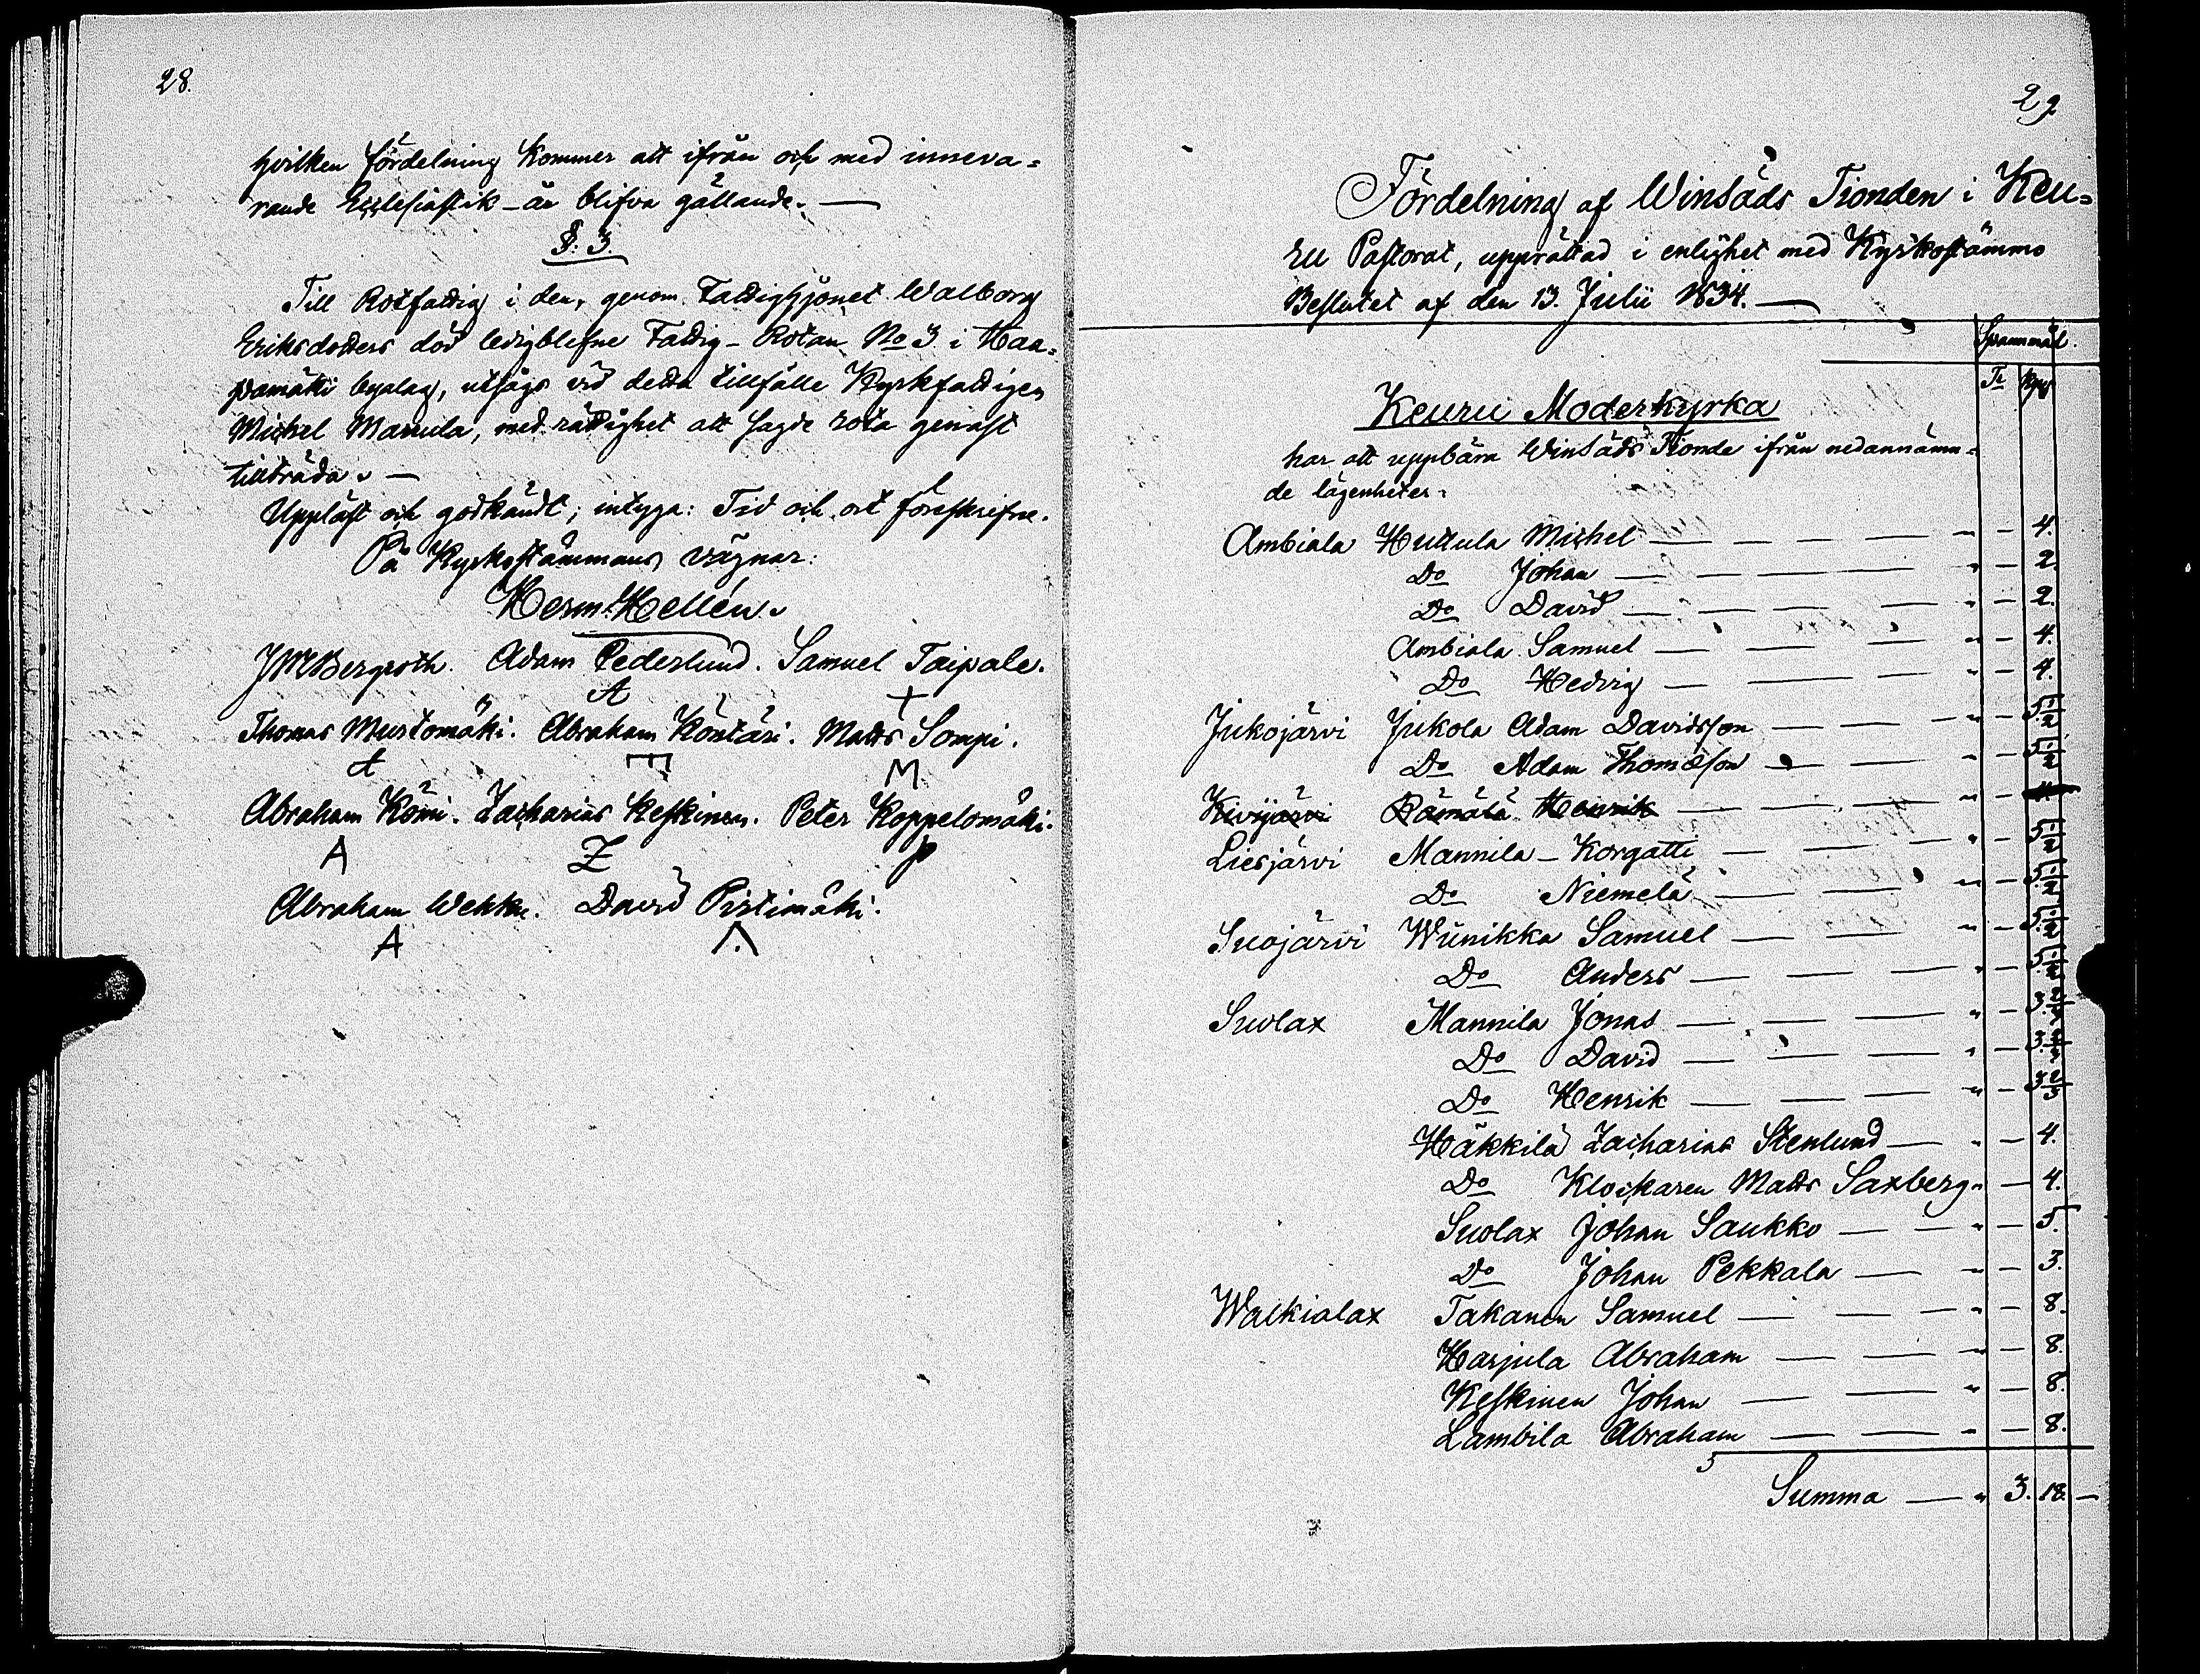 28.
hvilken fördelning kommer att ifrån och med inneva=
rande Ecclesiastik-år blifva gällande. —
§. 3.
Till Rotfattig i den, genom Fattighjonet Walborg
Eriksdotters död ledigblefne Fattig-Rotan No 3 i Haa=
pamäki byalag, utsågs vid detta tillfälle Kyrkfattigen
Michel Mannula, med rättighet att sagde rota genast
tillträda. —
Uppläst och godkändt; intyga: Tid och ort förskrifne.
På Kyrkostämmans vägnar:
Herm: Hellén.
J M Bergroth. Adam Pederlund. Samuel Taipale.
A +
Thomas Mustomäki. Abraham Köntäri. Matts Sompi.
M
Abraham Kömi. Zacharias Keskinen. Peter Koppelomäki.
A Z P
Abraham Wekka. David Pistimäki.
A
29
Fördelning af Winsäds Tionden i Keu=
ru Pastorat, upprättad i enlighet med Kyrkostämmo
Beslutet af den 13. Julii 1834. —
Spannmål.
Tr Kpr
Keuru Moderkyrka
har att uppbära Winsäds Tionde ifrån nedannämn=
de lägenheter:
Ambiala Huttula Michel — — — — " — 4.
Do Johan — — — — " — 2.
Do David — — — — " — 2.
Ambiala Samuel — — — " — 4.
Do Hedvig — — — — " — 4.
Jukojärvi Jukola Adam Davidsson — — — " — 5.1/2
Do Adam Thomæson — — — " — 5.1/2
Kivijärvi Rämälä Henrik — — — — " — 4
Liesjärvi Mannila - Korgatti — — — " — 5.1/2
Do Niemelä — — — " — 5.1/2
Suojärvi Wünikka Samuel — — — " — 5.1/2
Do Anders — — — — " — 5.1/2
Suolax Mannila Jonas — — — — " — 3.2/3
Do David — — — — " — 3.2/3
Do Henrik — — — — " — 3 2/3
Häkkilä Zacharias Stenlund — " — 4.
Do Klockaren Matts Saxberg " — 4.
Suolax Johan Saukko — — " — 5.
Do Johan Pekkala — — " — 3.
Walkialax Takanen Samuel — — — " — 8.
Harjula Abraham — — — " — 8.
Keskinen Johan — — — " — 8.
Lambila Abraham — — — " — 8.
Summa — " 3. 18. —